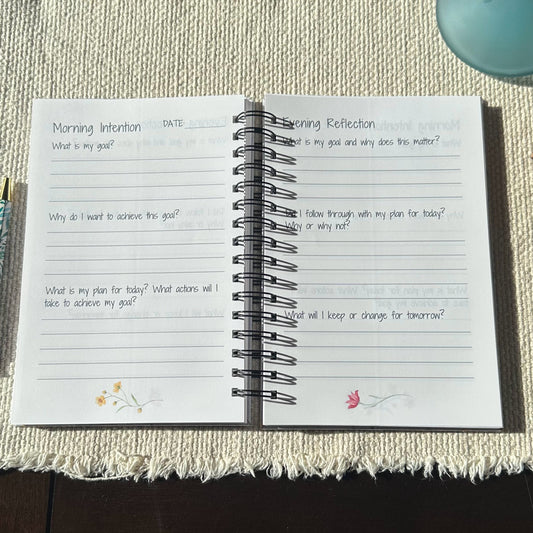 Morning Intention DATE:
What is my goal?
Why do I want to achieve this goal?
What is my plan for today? What actions will I
take to achieve my goal?
Evening Reflection
What is my goal and why does this matter?
Did I follow through with my plan for today?
Why or why not?
What will I keep or change for tomorrow?